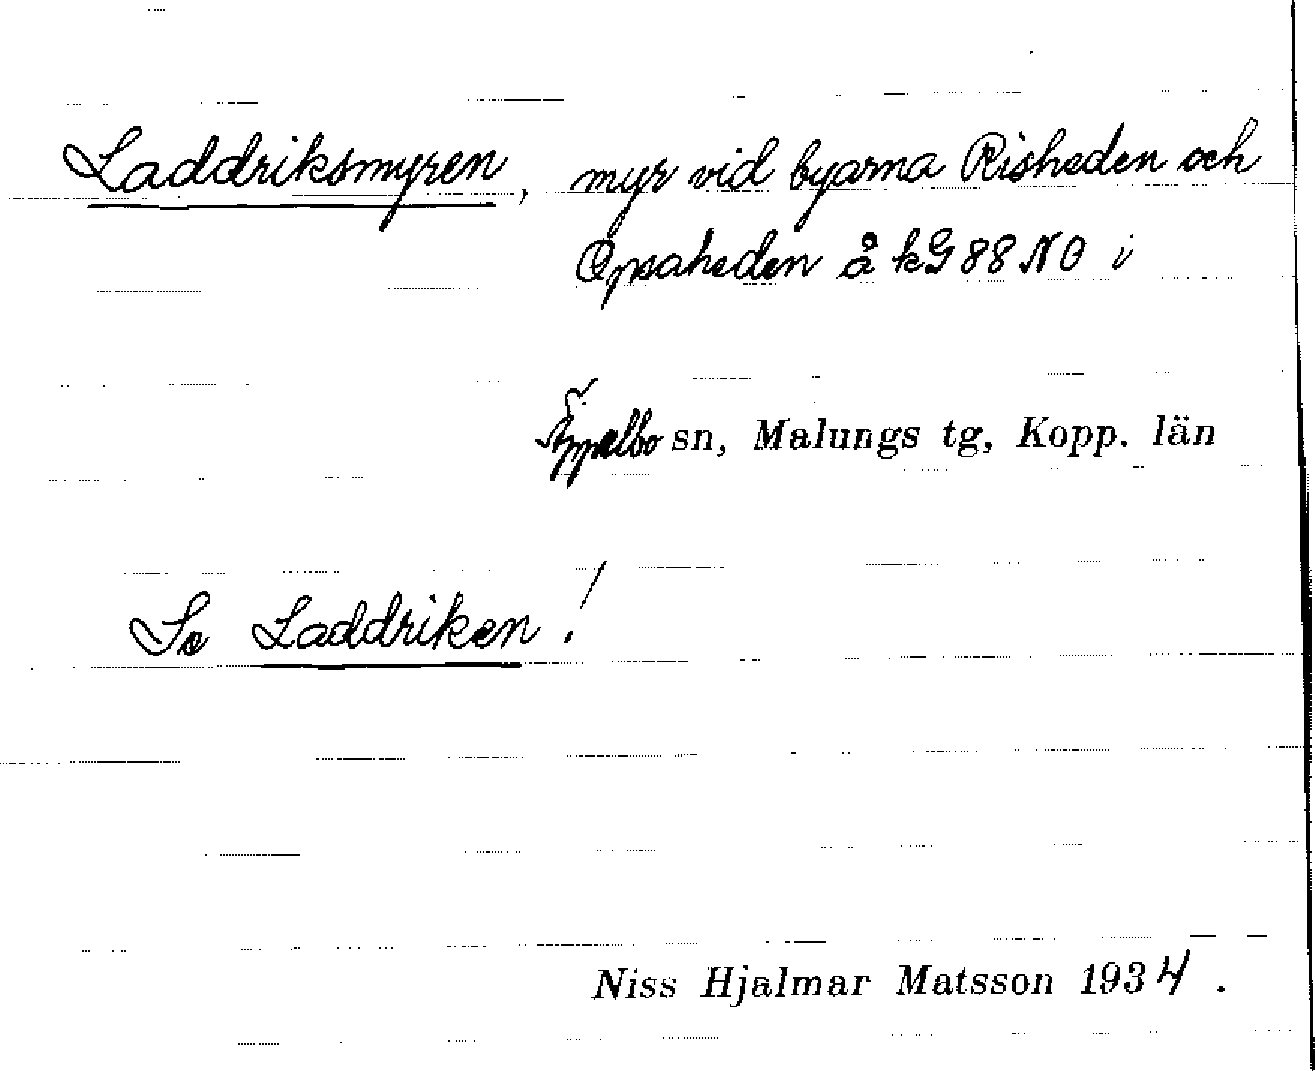 Laddriksmyren, myr vid byarna Risheden och
Opsaheden å kG 88 NO i
Äppelbo sn, Malungs tg, Kopp. län
Se Laddriken!
Niss Hjalmar Matsson 1934.